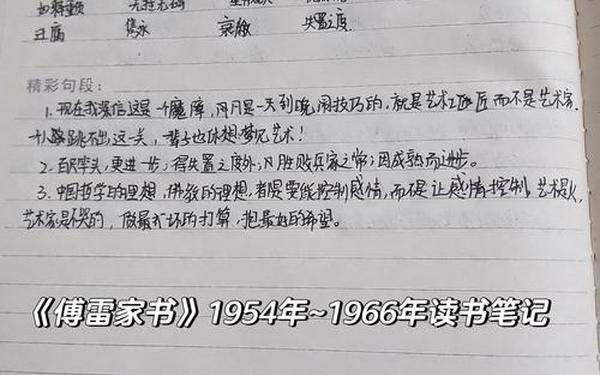 丑腐 隽永 衰敝 失置之度
精彩句段:
1.现在我深信这是一个魔障,凡是一天到晚闹技巧的,就是艺术工匠而不是艺术家.
一个人跳不出这一关,一辈子也休想梦见艺术!
2.百尺竿头,更进一步;得失置之度外;凡胜败兵家之常;因成熟而进步。
3.中国哲学的理想,佛教的理想,都是要能控制感情,而不是让感情控制.艺术是火,
艺术家是不哭的,做最坏的打算,抱最好的希望。
《傅雷家书》1954年~1966年读书笔记